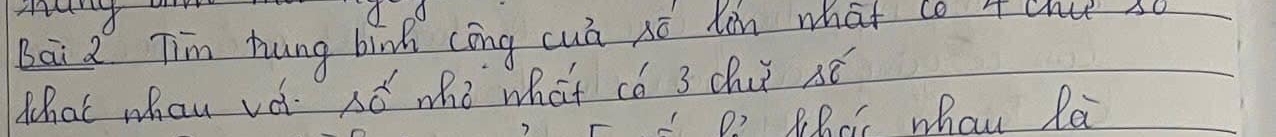 Bài 2 Tìm trung bình cộng của số lớn nhất có 4 chữ số
khac nhau với số nhỏ nhất có 3 chữ số
khác nhau là